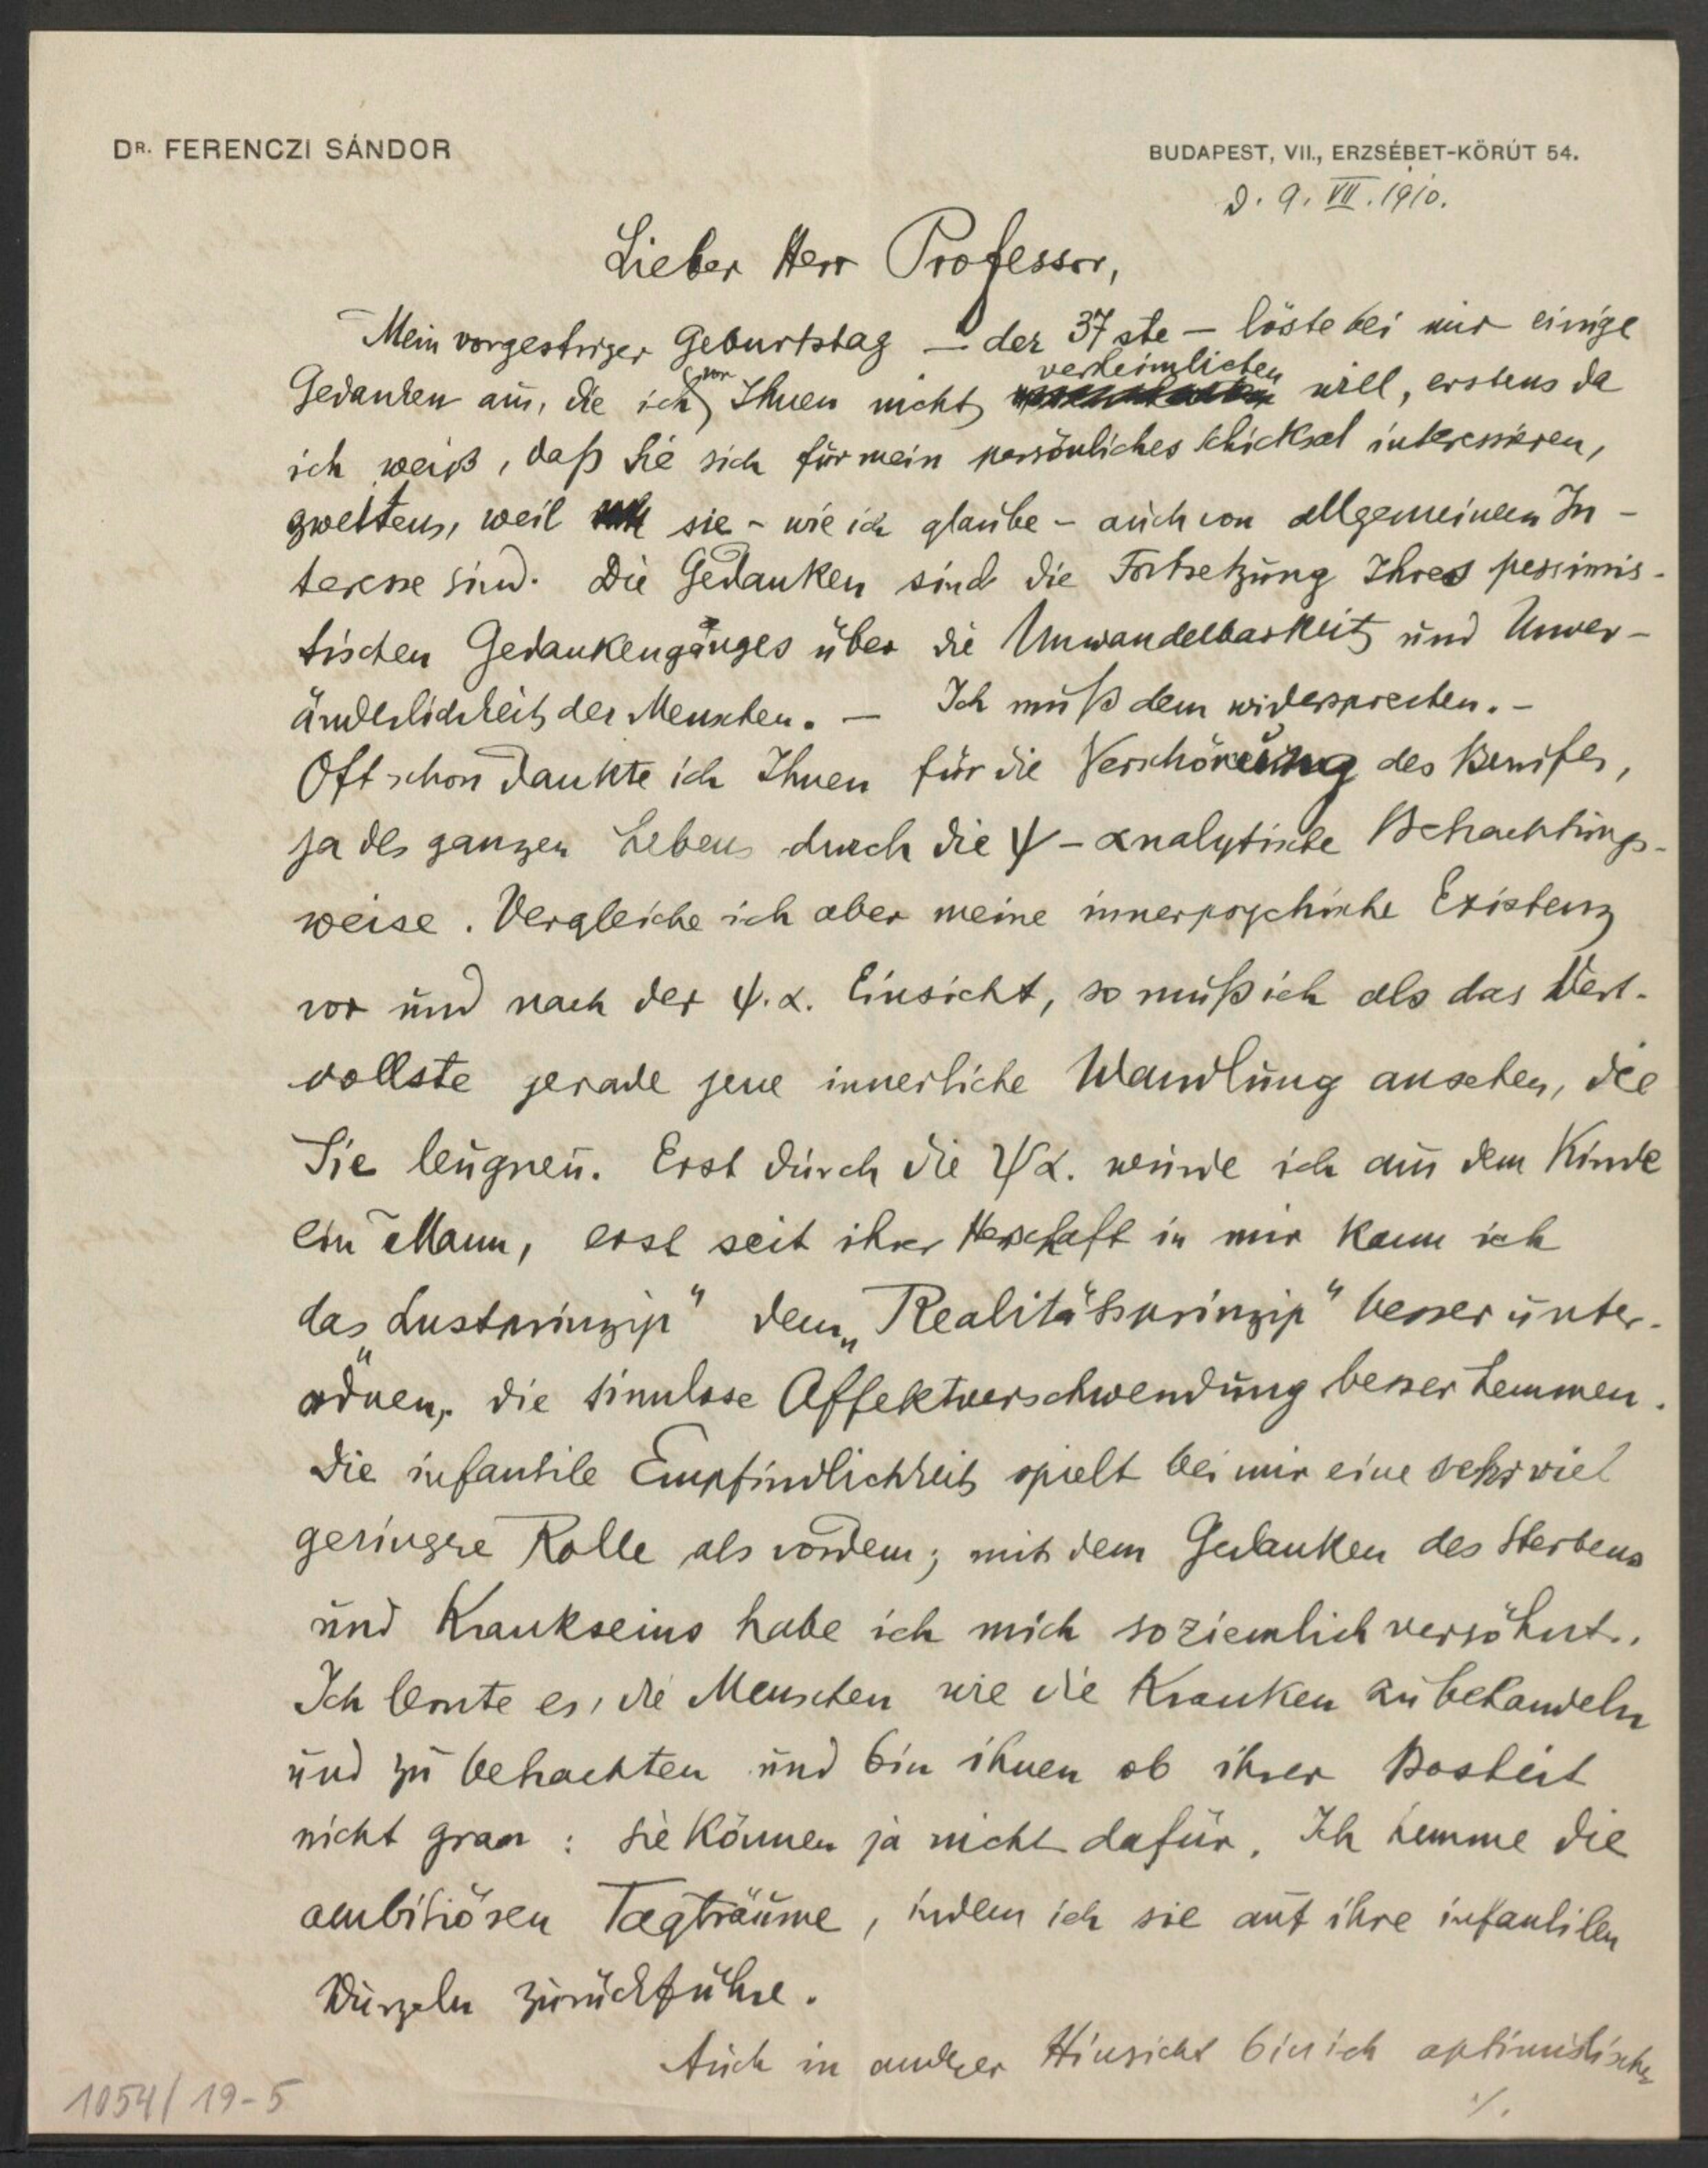 DR. FERENCZI SÁNDOR
BUDAPEST, VII., ERZSÉBET-KÖRÚT 54.
d. 9. VII. 1910.
Lieber Herr Professor,
Mein vorgestriger Geburtstag – der 37ste – löste bei mir einige
Gedanken aus, die ich von Ihnen nicht verheimlichen will, erstens da
ich weiß, daß Sie sich für mein persönliches Schicksal interessieren,
zweitens, weil sie – wie ich glaube – auch von allgemeinem In-
teresse sind. Die Gedanken sind die Fortsetzung Ihres pessimis-
tischen Gedankenganges über die Unwandelbarkeit und Unver-
änderlichkeit der Menschen. – Ich muß dem widersprechen. –
Oft schon dankte ich Ihnen für die Verschönerung des Berufes,
ja des ganzen Lebens durch die ψ-analytische Betrachtungs-
weise. Vergleiche ich aber meine innerpsychische Existenz
vor und nach der ψ.α. Einsicht, so muß ich als das Wert-
vollste gerade jene innerliche Wandlung ansehen, die
Sie leugnen. Erst durch die ψα. wurde ich aus dem Kinde
ein Mann, erst seit ihrer Herschaft in mir kann ich
das „Lustprinzip" dem „Realitätsprinzip" besser unter-
ordnen, die sinnlose Affektverschwendung besser hemmen.
Die infantile Empfindlichkeit spielt bei mir eine sehr viel
geringere Rolle als vordem; mit dem Gedanken des Sterbens
und Krankseins habe ich mich so ziemlich versöhnt.
Ich lernte es, die Menschen wie die Kranken zu behandeln
und zu betrachten und bin ihnen ob ihrer Bosheit
nicht gram : sie können ja nicht dafür. Ich hemme die
ambitiösen Tagträume, indem ich sie auf ihre infantilen
Wurzeln zurückführe.
Auch in andrer Hinsicht bin ich optimistischer
./.
1054/19-5